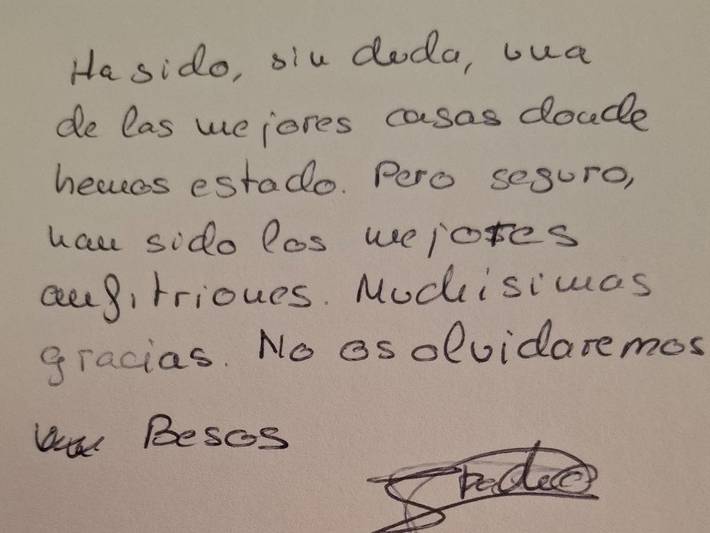 Ha sido, sin duda, una
de las mejores casas donde
hemos estado. Pero seguro,
han sido los mejores
anfitriones. Muchisimas
gracias. No os olvidaremos
Besos